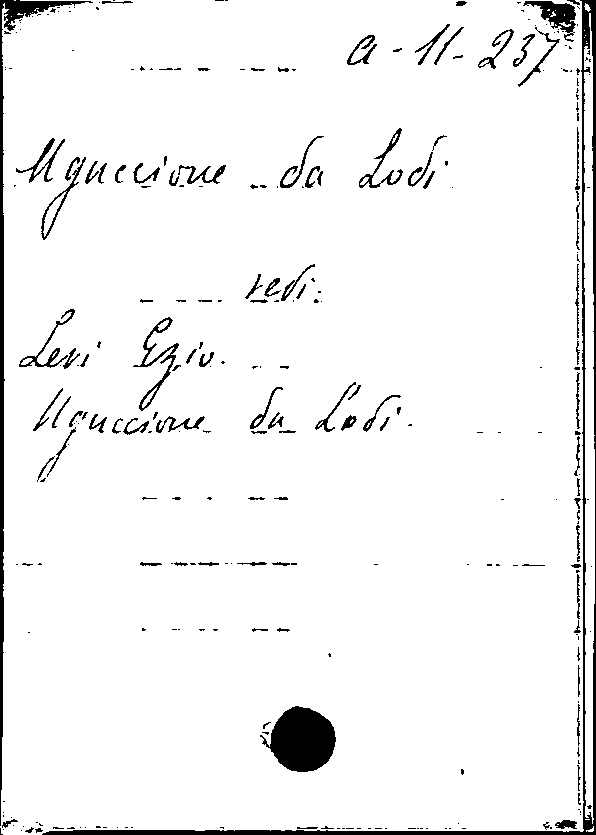 a-11-237
Uguccione da Lodi
vedi:
Levi Ezio.
Uguccione da Lodi.